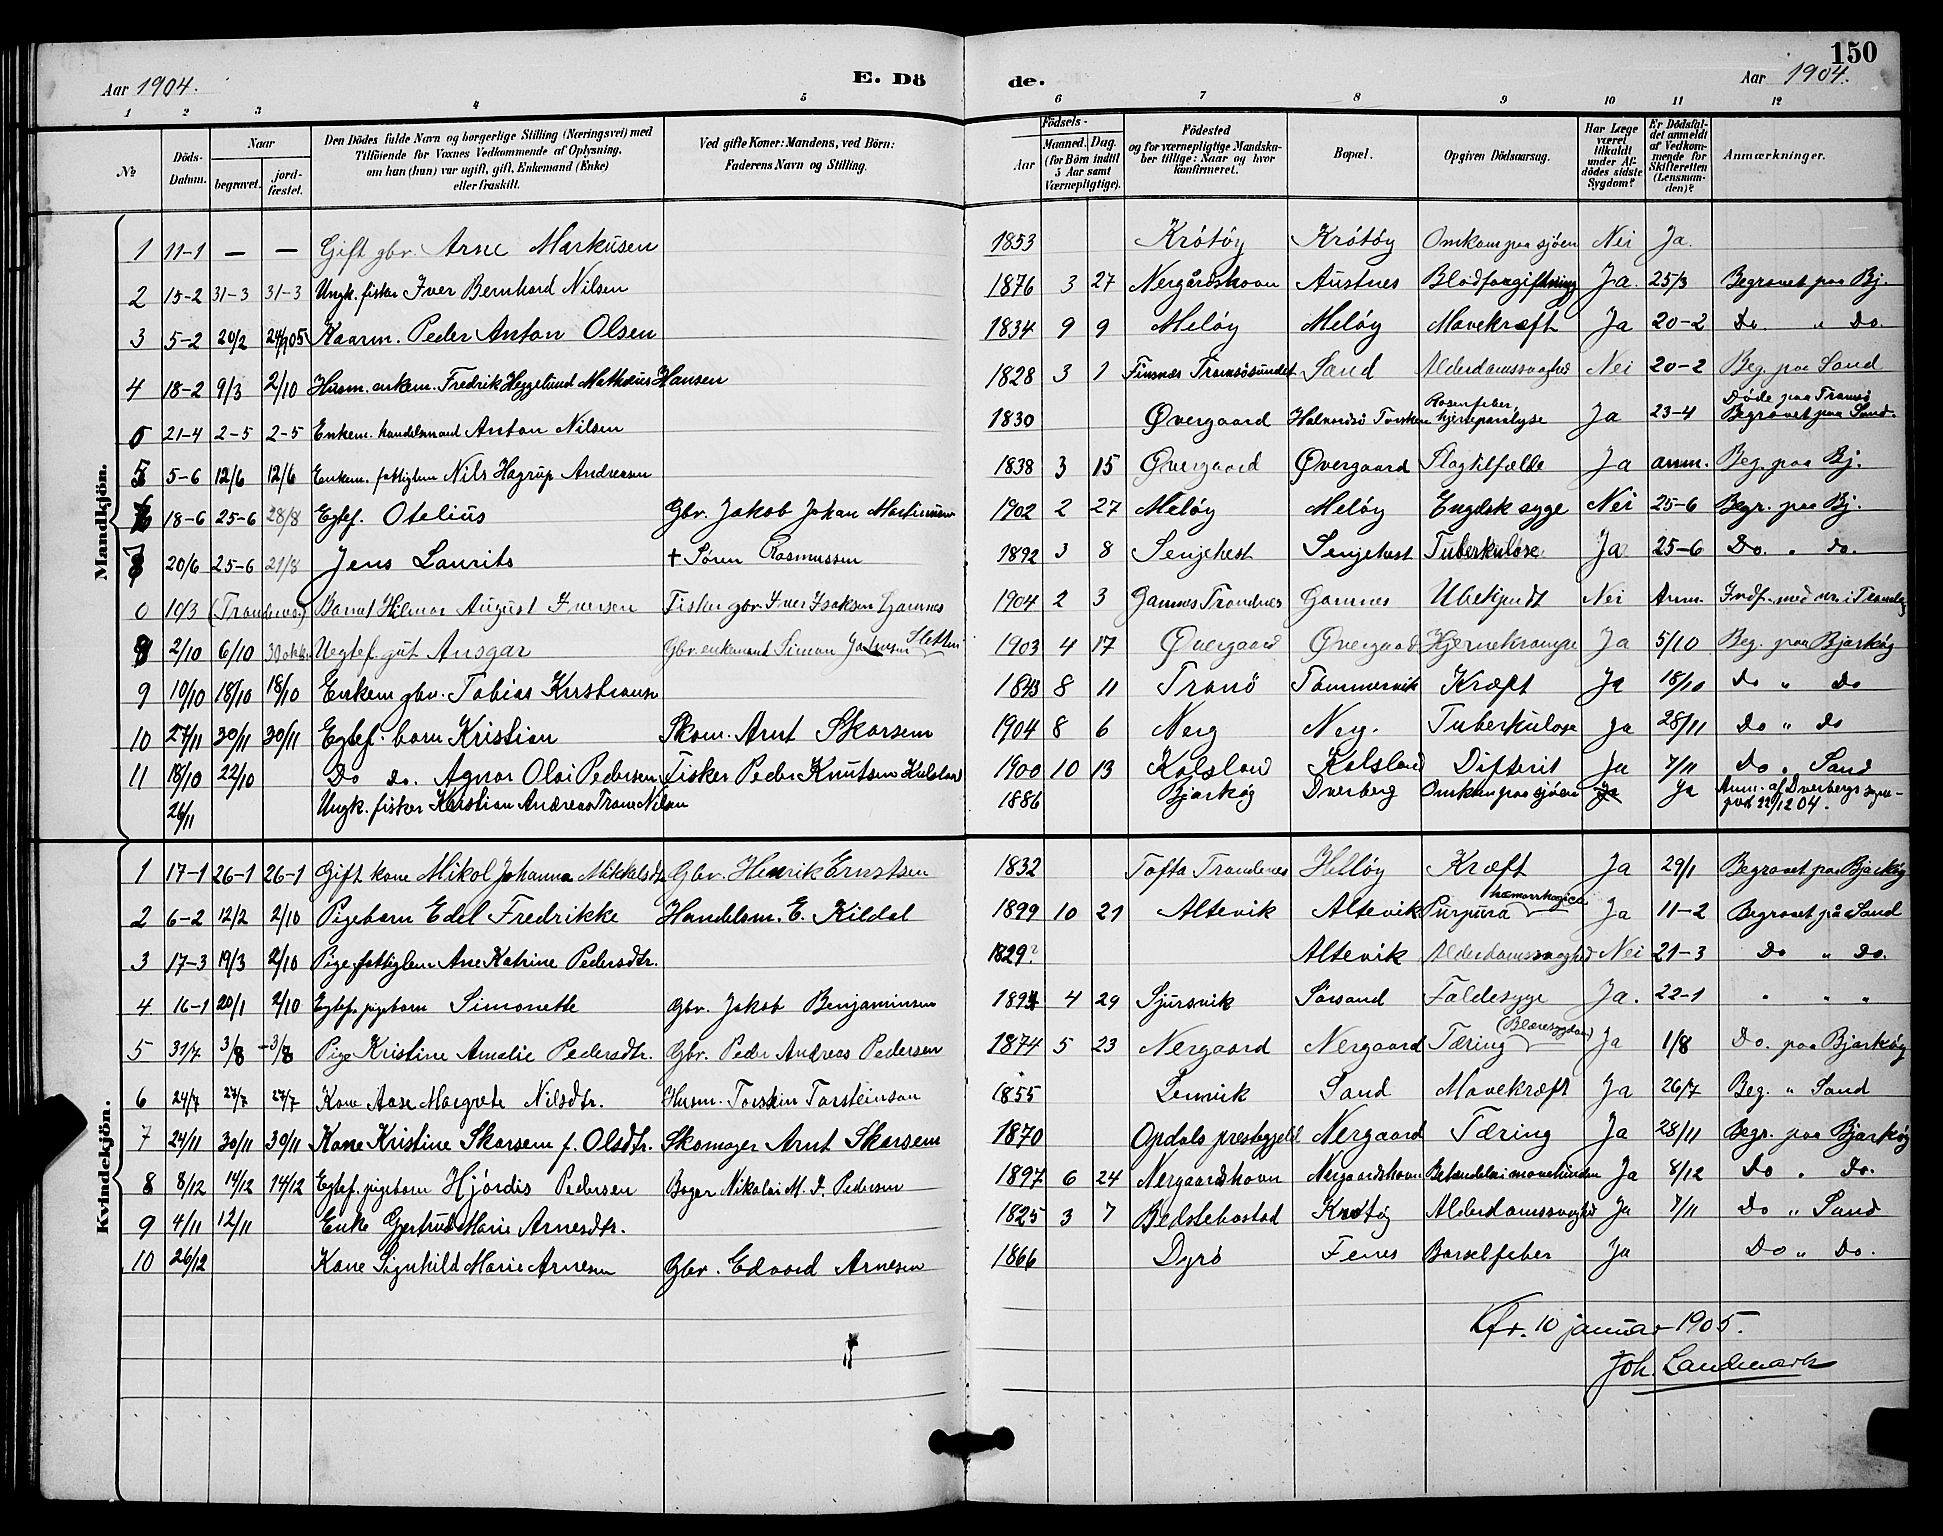 150
Aar 1904. E. Döde. Aar 1904.
1 2 3 4 5 6 7 8 9 10 11 12
No
Döds-Datum.
Naar
begravet.
jord-fæstet.
Den Dödes fulde Navn og borgerlige Stilling (Næringsvei) med
Tilföiende for Voxnes Vedkommende af Oplysning,
om han (hun) var ugift, gift, Enkemand (Enke)
eller fraskilt.
Ved gifte Koner: Mandens, ved Börn:
Faderens Navn og Stilling.
Födsels-
Aar
Maaned. Dag.
(for Börn indtil 5 Aar samt Værnepligtige).
Födested
og for værnepligtige Mandska-
ber tillige: Naar og hvor
konfirmeret.
Bopæl.
Opgiven Dödsaarsag.
Har Læge været tilkaldt under Afdödes sidste Sygdom?
Er Dödsfaldet anmeldt af Vedkommende for Skifteretten (Lensmanden)?
Anmærkninger.
Mandkjön.
1 11-1 — — Gift gbr. Arne Markusen 1853 Krötöy Krötöy Omkom paa sjöen Nei Ja.
2 15-2 31-3 31-3 Ungk. fisker Iver Bernhard Nilsen 1876 3 27 Nergårdshavn Austnes Blodforgiftning Ja. 25/3 Begravet paa Bj.
3 5-2 20/2 24/9 05 Kaarm. Peder Anton Olsen 1834 9 9 Meløy Meløy Mavekræft Ja 20-2 Do. " Do.
4 18-2 9/3 2/10 Husm. enkem. Fredrik Heggelund Mathæus Hansen 1828 3 1 Finsnæs Tromsøsundet Sand Alderdomssvaghed Nei 20-2 Beg. paa Sand
5 21-4 2-5 2-5 Enkem. handelsmand Anton Nilsen 1830 Øvergaard Halvardsø Torsken Rosenfeber, hjerteparalyse Ja 23-4 Døde paa Tromsø Begravet paa Sand.
5-6 12/6 12/6 Enkem. fattiglem Nils Hagrup Andreasen 1838 3 15 Øvergaard Øvergaard Slagtilfælde Ja anm. Beg. paa Bj.
18-6 25-6 28/8 Egtef. Otelius Gbr. Jakob Johan Martinusen 1902 2 27 Meløy Meløy Engelsk syge Nei 25-6 Begr. paa Bj.
20/6 25-6 21/8 Jens Laurits † Søren Rasmussen 1892 3 8 Senjehest Senjehest Tuberkuløse Ja 25-6 Do. " do.
0 10/3 (Trondenes) Barnet Hilmar August Iversen Fisker gbr. Iver Isaksen Gamnes 1904 2 3 Gamnes Trondnes Gamnes Ubekjendt Nei Anm. Indf. med nr. i
2/10 6/10 30 oktbr. Uegtef. gut Ansgar Gbr. enkemand Simon 1903 4 17 Øvergaard Øvergaard Hjernekrampe Ja 5/10 Beg. paa Bjarkøy
9 10/10 18/10 18/10 Enkem gbr. Tobias Kristiansen 1843 8 11 Tranö Tömmervik Kræft Ja 18/10 Do " Do
10 27/11 30/11 30/11 Egtef. barn Kristian Skom. Arnt Skorsem 1904 8 6 Nerg Nerg. Tuberkulose Ja 28/11 Do " Do
11 18/10 22/10 Do do. Agnar Olai Pedersen Fisker Peder Knutsen 1900 10 13 Kalsland Kalsland Difterit Ja 7/11 Do " Sand
26/11 Ungk. fisker Kristian Andreas Trane Nilsen 1886 Bjarkøy Dverberg Omkom paa sjöen Ja Ja Anm. af Dverbergs sogne-
pr. 22/12 04.
Kvindekjön.
1 17-1 26-1 26-1 Gift kone Mikol Johanna Mikkelsdtr. Gbr. Henrik Ernstsen 1832 Tofta Trondenes Helløy Kræft Ja 29/1 Begravet paa Bjarkøy
2 6-2 12/2 2/10 Pigebarn Edel Fredrikke Handelsm. E. Kildal 1899 10 21 Altevik Altevik Purpura hæmorrhagica Ja 11-2 Begravet på Sand
3 17-3 19/3 2/10 Pige fattiglem Ane Katrine Pedersdtr. 1829? Altevik Alderdomssvaghed Nei 21-3 Do " Do.
4 16-1 20/1 2/10 Egtef. pigebarn Simonette Gbr. Jakob Benjaminsen 1894 4 29 Sjursvik Sörsand Faldesyge Ja. 22-1 " " "
5 31/7 3/8 -3/8 Pige Kristine Amalie Pedersdtr. Gbr. Peder Andreas Pedersen 1874 5 23 Nergaard Nergaard Tæring (Blæresygdom) Ja 1/8 Do. paa Bjarkøy
6 24/7 27/7 27/7 Kone Aase Margrete Nilsdtr. Husm. Torstein Torsteinson 1855 Lenvik Sand Mavekræft Ja 26/7 Beg. " Sand
7 24/11 30/11 30/11 Kone Kristine Skorsem f. Olsdtr. Skomager Arnt Skorsem 1870 Opdals prestegjeld Nergaard Tæring Ja 28/11 Begr. paa Bjarkøy
8 8/12 14/12 14/12 Egtef. pigebarn Hjördis Pedersen Bager Nikolai M. J. Pedersen 1897 6 24 Nergaardshavn Nergaardshavn Betændelse i mavehinden Ja 8/12 Do " Do.
9 4/11 12/11 Enke Gjertrud Marie Arnesdtr. 1825 3 7 Bedstebostad Krøtøy Alderdomssvaghed Ja 7/11 Do " Sand
10 26/12 Kone Signhild Marie Arnesen Gbr. Edvard Arnesen 1866 Dyrö Fenes Barselfeber Ja Do " Do.
Kfr. 10 januar 1905.
Joh. Landmark